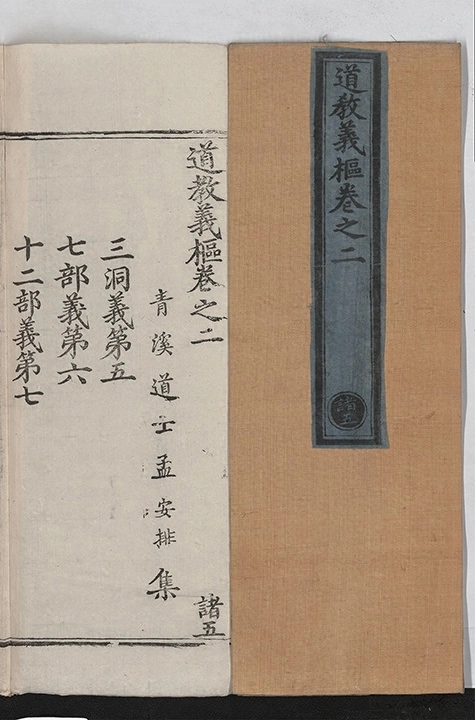 道教義樞卷之二
諸五
道教義樞卷之二
諸五
青溪道士孟安排集
三洞義第五
七部義第六
十二部義第七